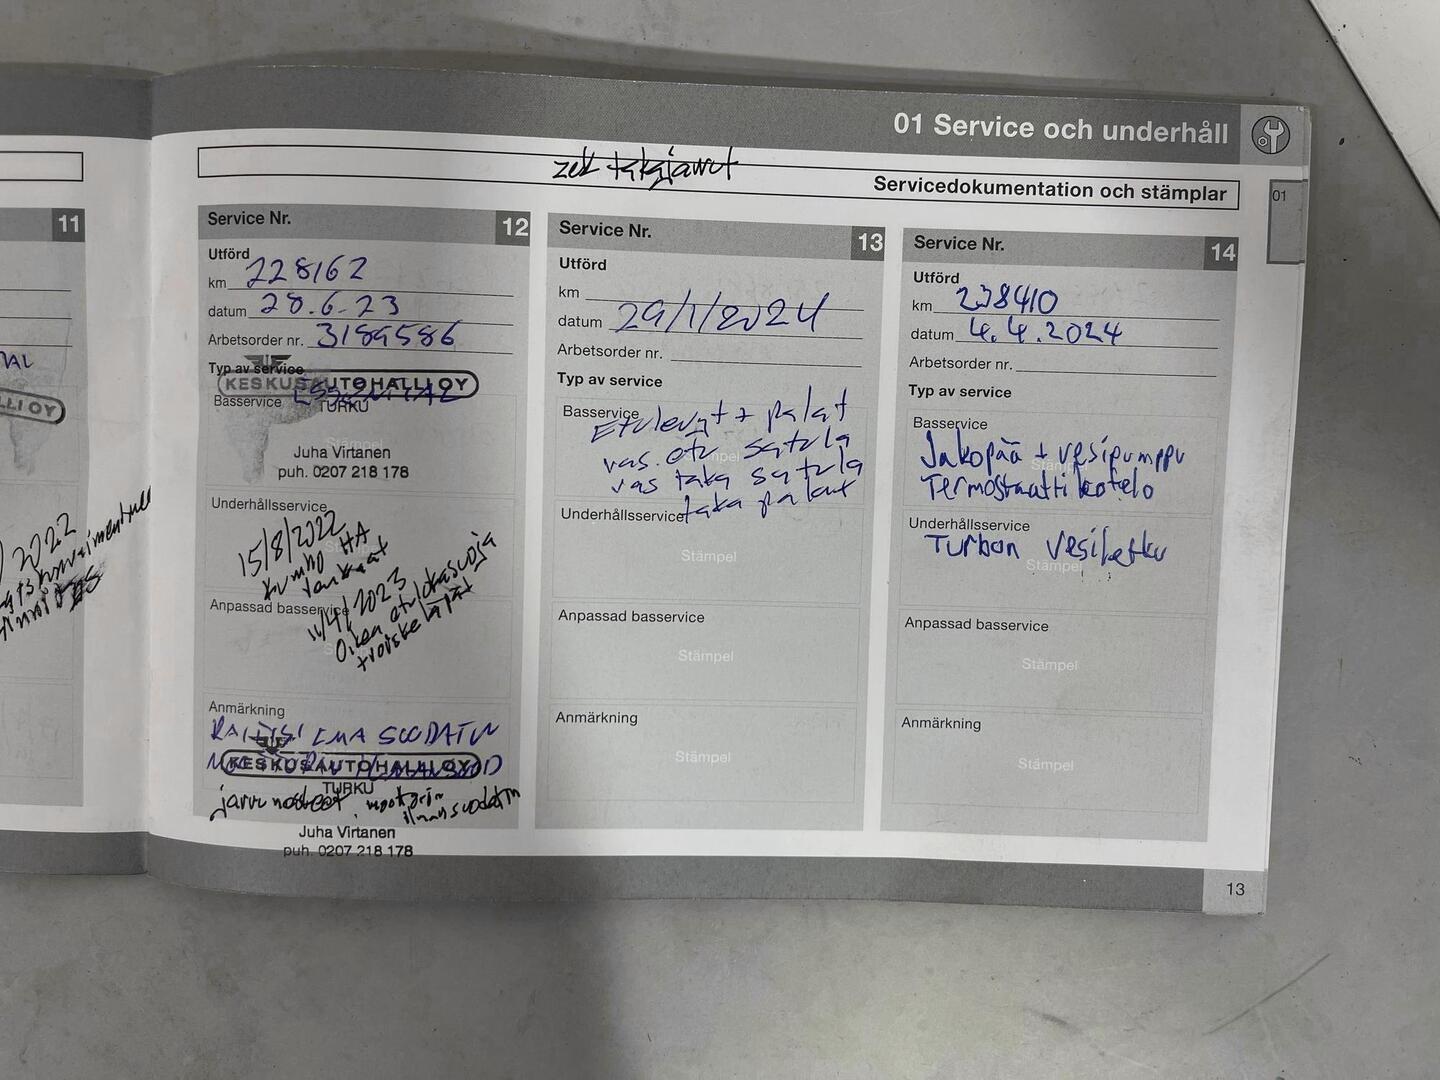 01 Service och underhåll
Servicedokumentation och stämplar
01
11
LLI OY
2022
Service Nr. 12
Utförd
km 228162
datum 28.6.23
Arbetsorder nr. 3189586
Typ av service
KESKUSAUTOHALLI OY
TURKU
Basservice
Stämpel
Juha Virtanen
puh. 0207 218 178
Underhållsservice
15/8/2022
Kumho HA
renkaat
Anpassad basservice
11/4/2023
Oikea etulokasuoja
+ roiskeläpät
Anmärkning
RAITISILMA SUODATIN
KESKUSAUTOHALLI OY
TURKU
jarrunesteet, moottorin
ilmansuodatin
Juha Virtanen
puh. 0207 218 178
Service Nr. 13
Utförd
km
datum 29/1/2024
Arbetsorder nr.
Typ av service
Basservice
Etulevyt + palat
vas. etu satula
vas taka satula
taka palat
Stämpel
Underhållsservice
Stämpel
Anpassad basservice
Stämpel
Anmärkning
Stämpel
Service Nr. 14
Utförd
km 238410
datum 4.4.2024
Arbetsorder nr.
Typ av service
Basservice
Jakopää + vesipumppu
Stämpel
Termostaatti kotelo
Underhållsservice
Turbon vesiletku
Stämpel
Anpassad basservice
Stämpel
Anmärkning
Stämpel
13